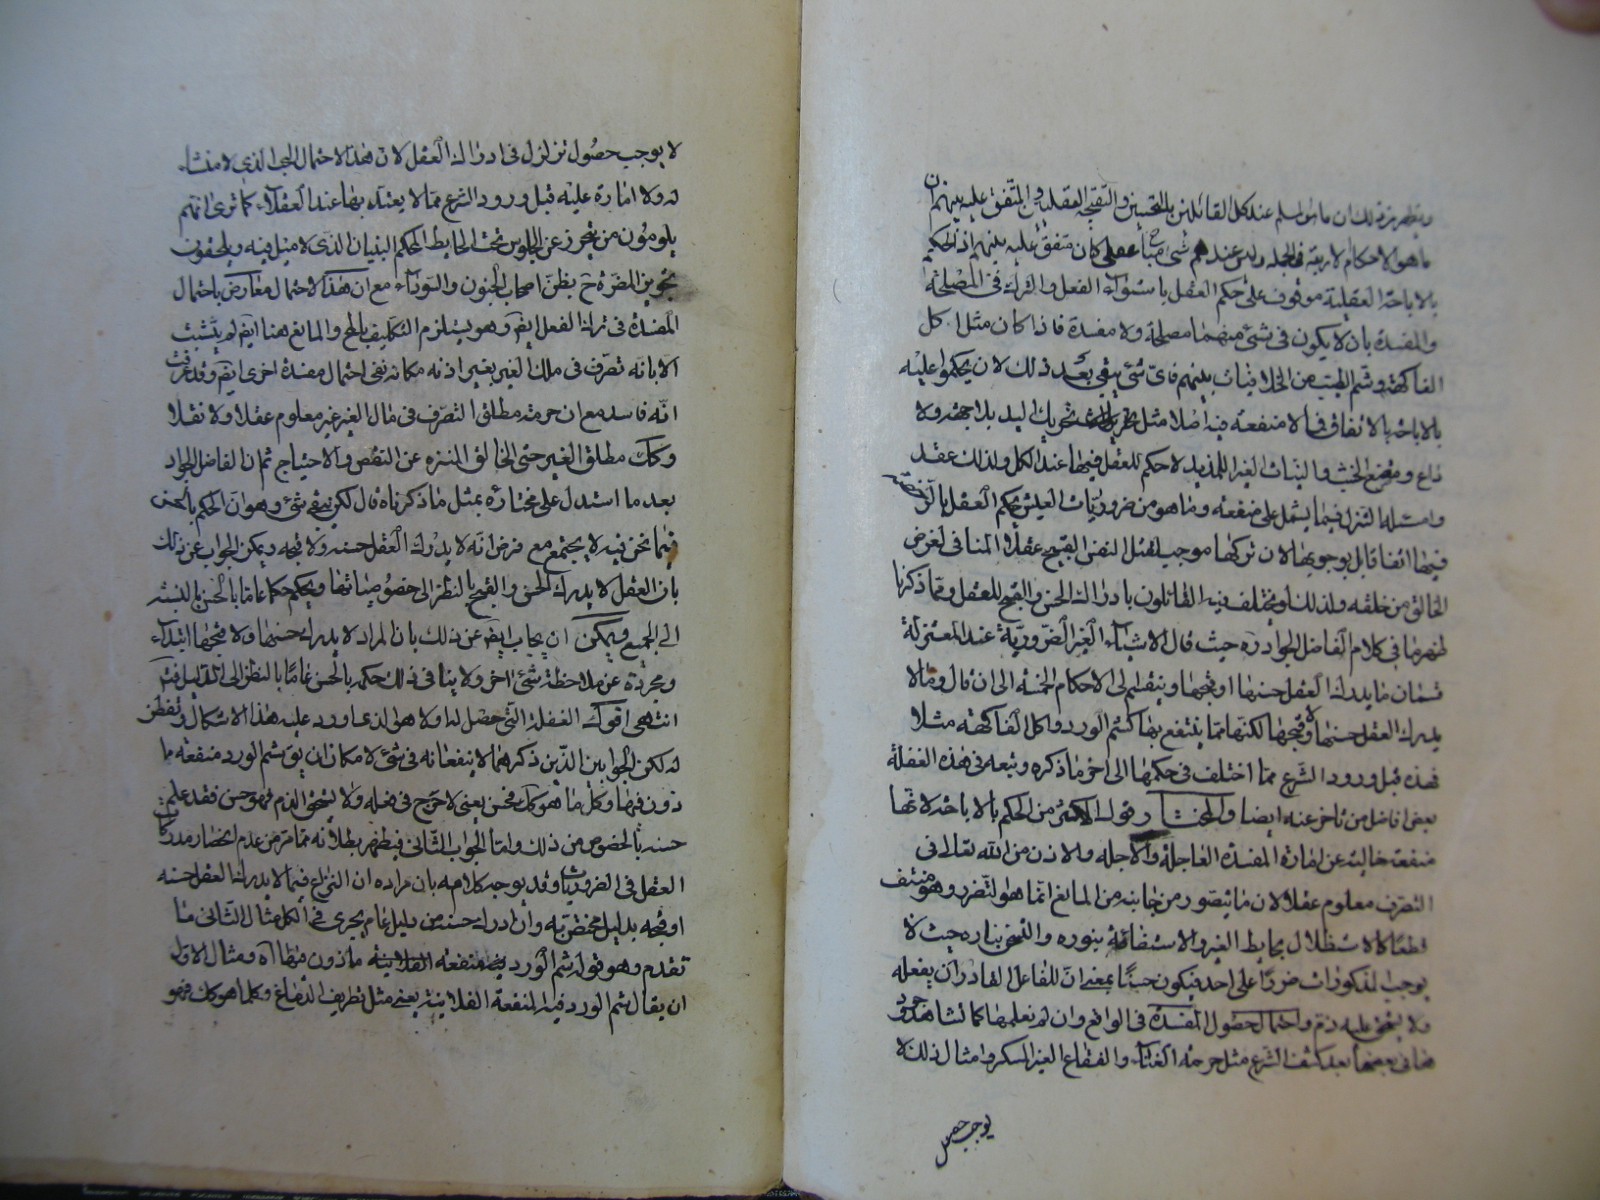 ويظهر من ذلك ان ما هو المسلم عند كل القائلين بالتحسين والتقبيح العقليين والمتفق عليه بينهم ان
ما هو الاحكام الاربعة في الجملة وليس عندهم شئ مباح عقلي كان متفق عليه بينهم اذ الحكم
بالاباحة العقلية موقوف على حكم العقل باستواء الفعل والترك في المصلحة
والمفسدة بان لا يكون في شئ منهما مصلحة ولا مفسدة فاذا كان مثل اكل
الفاكهة وشم الطيب من الخلافيات بينهم فاى شئ يبقى بعد ذلك لان يحكموا عليه
بالاباحة بالاتفاق فما لا منفعة فيه اصلا مثل تحريك اليد بلا جهة ولا
داع ومضغ الخشب والنبات الغير اللذيذ لا حكم للعقل فيها عند الكل ولذلك عقد
وامسئلة النزاع فيما يشمل على منفعة وما هو من ضروريات العيش يحكم العقل بالرخصة
فيها اتفاقا بل بوجوبها لان تركها موجب لقتل النفس القبيح عقلا والمنافى لغرض
الخالق من خلقه ولذلك لم يختلف فيه القائلون بادراك الحسن والقبح للعقل ومما ذكرنا
ظهر ما في كلام الفاضل الجواد ره حيث قال الاشياء الغير الضرورية عند المعتزلة
قسمان ما يدرك العقل حسنها او قبحها وينقسم الى الاحكام الخمسة الى ان قال وما لا
يدرك العقل حسنها ولا قبحها لكنها مما ينتفع بها كشم الورد واكل الفاكهة مثلا
فهذه قبل ورود الشرع مما اختلف في حكمها الى اخر ما ذكره وتبعه في هذه الغفلة
بعض افاضل من تاخر عنه ايضا والمختار قول الاكثر من الحكم بالاباحة لانها
منفعة خالية عن امارة المفسدة العاجلة والآجلة والاذن من الله تعالى في
التصرف معلوم عقلا لان ما يتصور من جانبه من المانع انما هو التضرر وهو منتف
قطعا كالاستظلال بحايط الغير والاستضائة بنوره والتسخن بناره حيث لا
يوجب المذكورات ضررا على احد فيكون حسنا بمعنى ان للفاعل القادر ان يفعله
ولا يستحق عليه ذم واحتمال حصول المفسدة في الواقع وان لم نعلمها كما نشاهد وجود
ها في بعضها بعد كشف الشرع مثل حرمة الغناء والفقاع الغير المسكر وامثال ذلك لا
يوجب حصول
لا يوجب حصول تزلزل في ادراك العقل لان هذا الاحتمال البحت الذي لا منشاء
له ولا امارة عليه قبل ورود الشرع مما لا يعتد به عند العقلاء كما ترى انهم
يلومون من يحرز عن الجلوس تحت الحايط المحكم البنيان الذي لا ميل فيه ويلحقون
تجويز المضرة ح بظن اصحاب الجنون والسوداء مع ان هذا الاحتمال معارض باحتمال
المفسدة في ترك الفعل ايضا وهو يستلزم التكليف بالمح والمانع هنا ايضا لم يتشبث
الا بانه تصرف في ملك الغير بغير اذنه مكانه نفى احتمال مفسدة اخرى ايضا وقد عرفت
انه فاسد مع ان حرمة مطلق التصرف في مال الغير غير معلوم عقلا ولا نقلا
وكك مطلق الغير حتى الخالق المنزه عن النقص والاحتياج ثم ان الفاضل الجواد
بعد ما استدل على مختاره بمثل ما ذكرناه قال لكن بقى شئ وهو ان الحكم بالحسن
فيما نحن فيه لا يجتمع مع فرض انه لا يدرك العقل حسنه ولا قبحه ويمكن الجواب عن ذلك
بان العقل لا يدرك الحسن والقبح بالنظر الى خصوصياتها ويحكم حكما عاما بالحسن بالنسبة
الى الجميع ويمكن ان يجاب ايضا عن ذلك بان المراد لا يدرك حسنها ولا قبحها ابتداء
ومجردة عن ملاحظة شئ اخر ولا ينافي ذلك حكمه بالحسن عاما بالنظر الى الدليل فيه
انتهى اقول الغفلة التي حصل له اولا هو الذي اورد عليه هذا الاشكال وتفطن
له لكن الجوابين الذين ذكرهما لا ينفعانه في شئ لامكان ان يق شم الورد منفعة ما
ذون فيها وكل ما هو كك فحسن يعني لا حرج في فعله ولا يستحق الذم فهو حسن فقد علم
حسنه بالخصوص من ذلك واما الجواب الثانى فيظهر بطلانه مما مر من عدم انحصار مدركات
العقل في الضروريات وقد يوجه كلامه بان مراده ان النزاع فيما لا يدرك العقل حسنه
او قبحه بدليل مختص به وان ادرك حسنه من دليل عام يجرى في الكل مثال الثانى ما
تقدم وهو قوله شم الورد منفعة ماذون فيها آه ومثال الاول
ان يقال شم الورد فيه المنفعة الفلانية يعني مثل تطريف الدماغ وكلما هو كك فهو